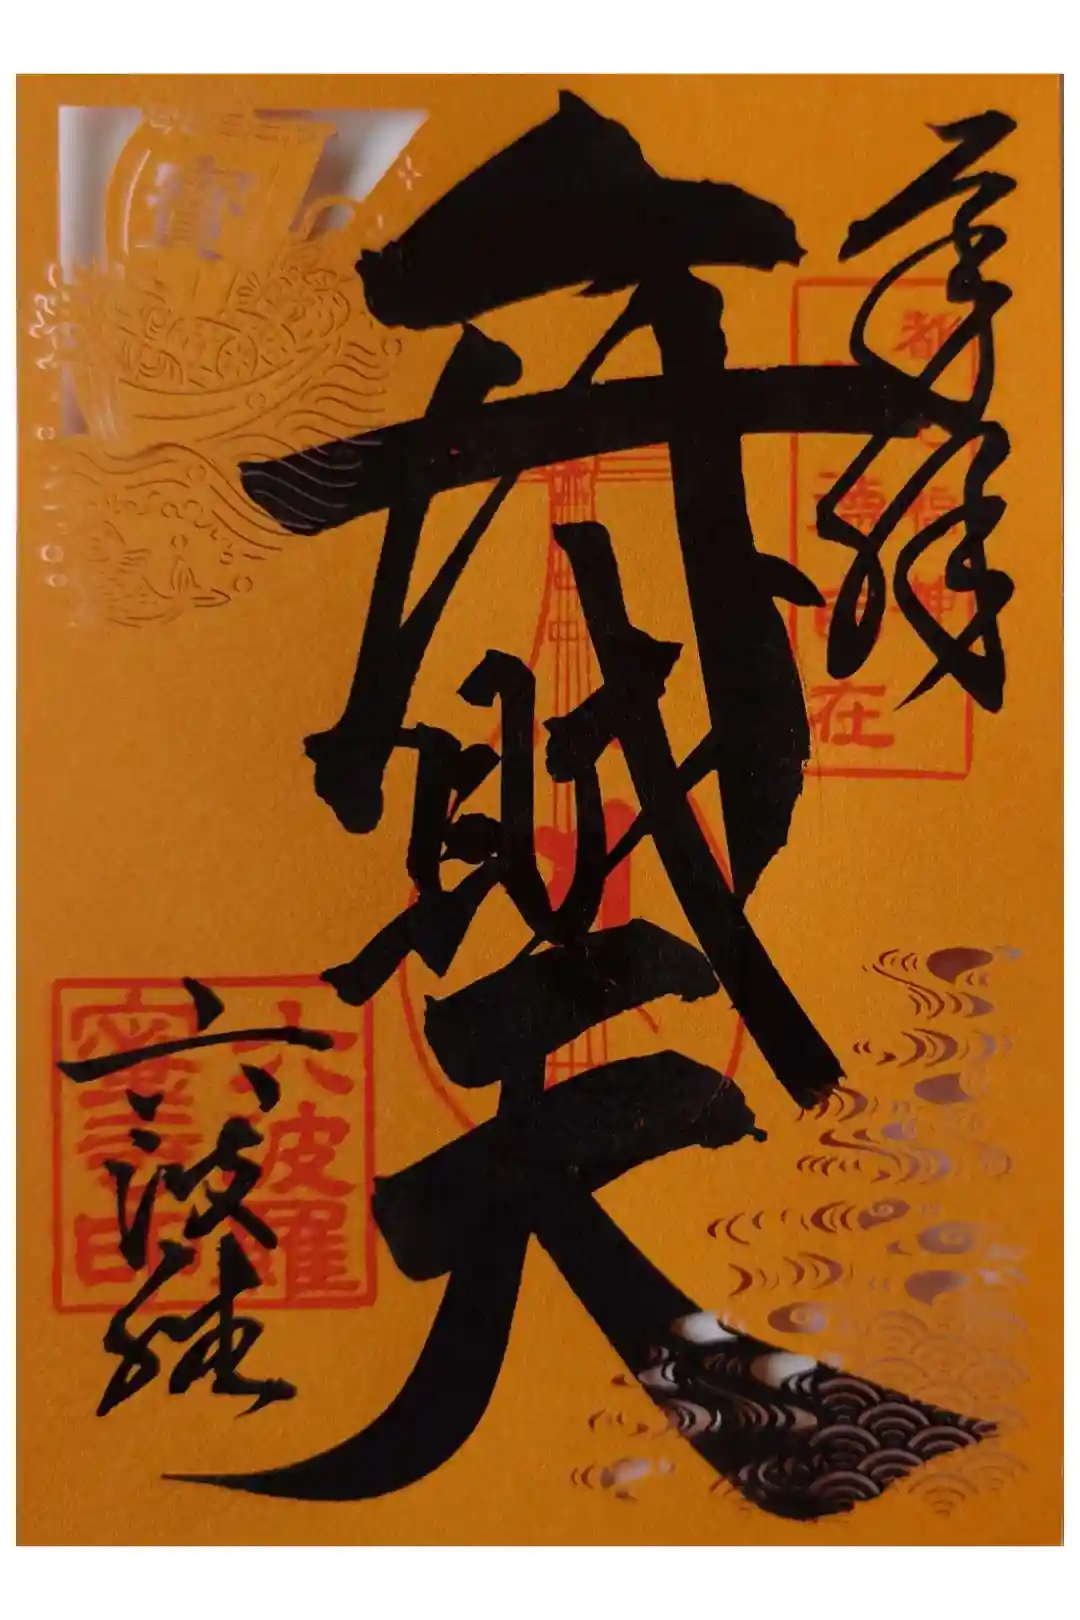 奉拝
都七福神
弁財天
六波羅
六波羅
蜜寺印
寶